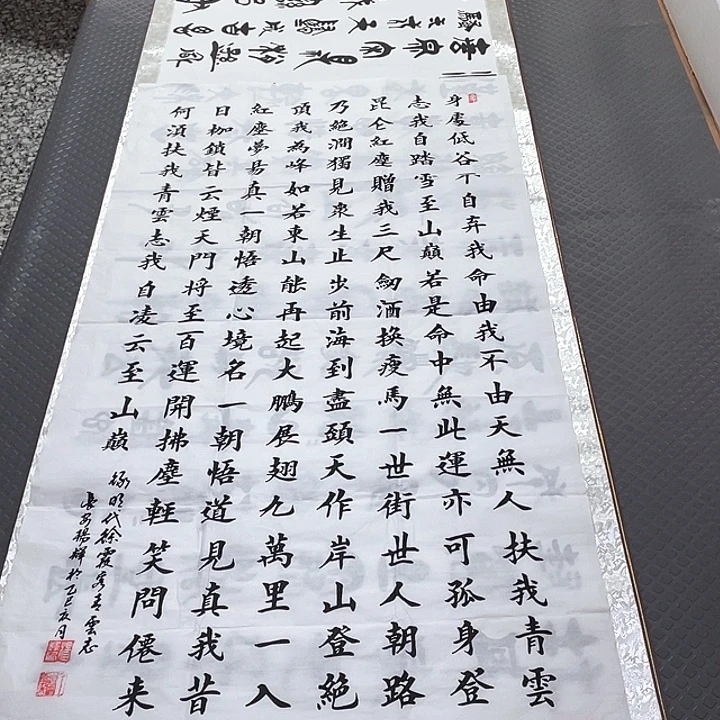 身處低谷不自弃我命由我不由天無人扶我青雲
志我自踏雪至山巔若是命中無此運亦可孤身登
昆仑紅塵贈我三尺劒酒換瘦馬一世街世人朝路
乃絕澗獨見衆生止步前海到盡頭天作岸山登絕
頂我為峰如若東山能再起大鵬展翅九萬里一入
紅塵夢易真一朝悟透心境名一朝悟道見真我昔
日枷鎖皆云煙天門將至百運開拂塵輕笑問僊来
何湏扶我青雲志我自凌云至山巔
錄明代徐霞客青雲志
長安楊輝於乙巳夏月